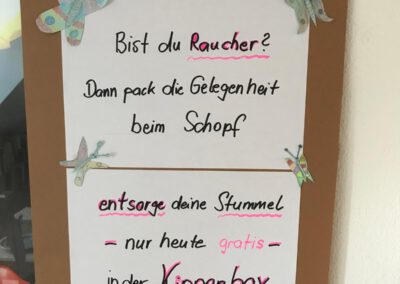 Bist du Raucher?
Dann pack die Gelegenheit
beim Schopf
entsorge deine Stummel
- nur heute gratis -
in der Kippenbox